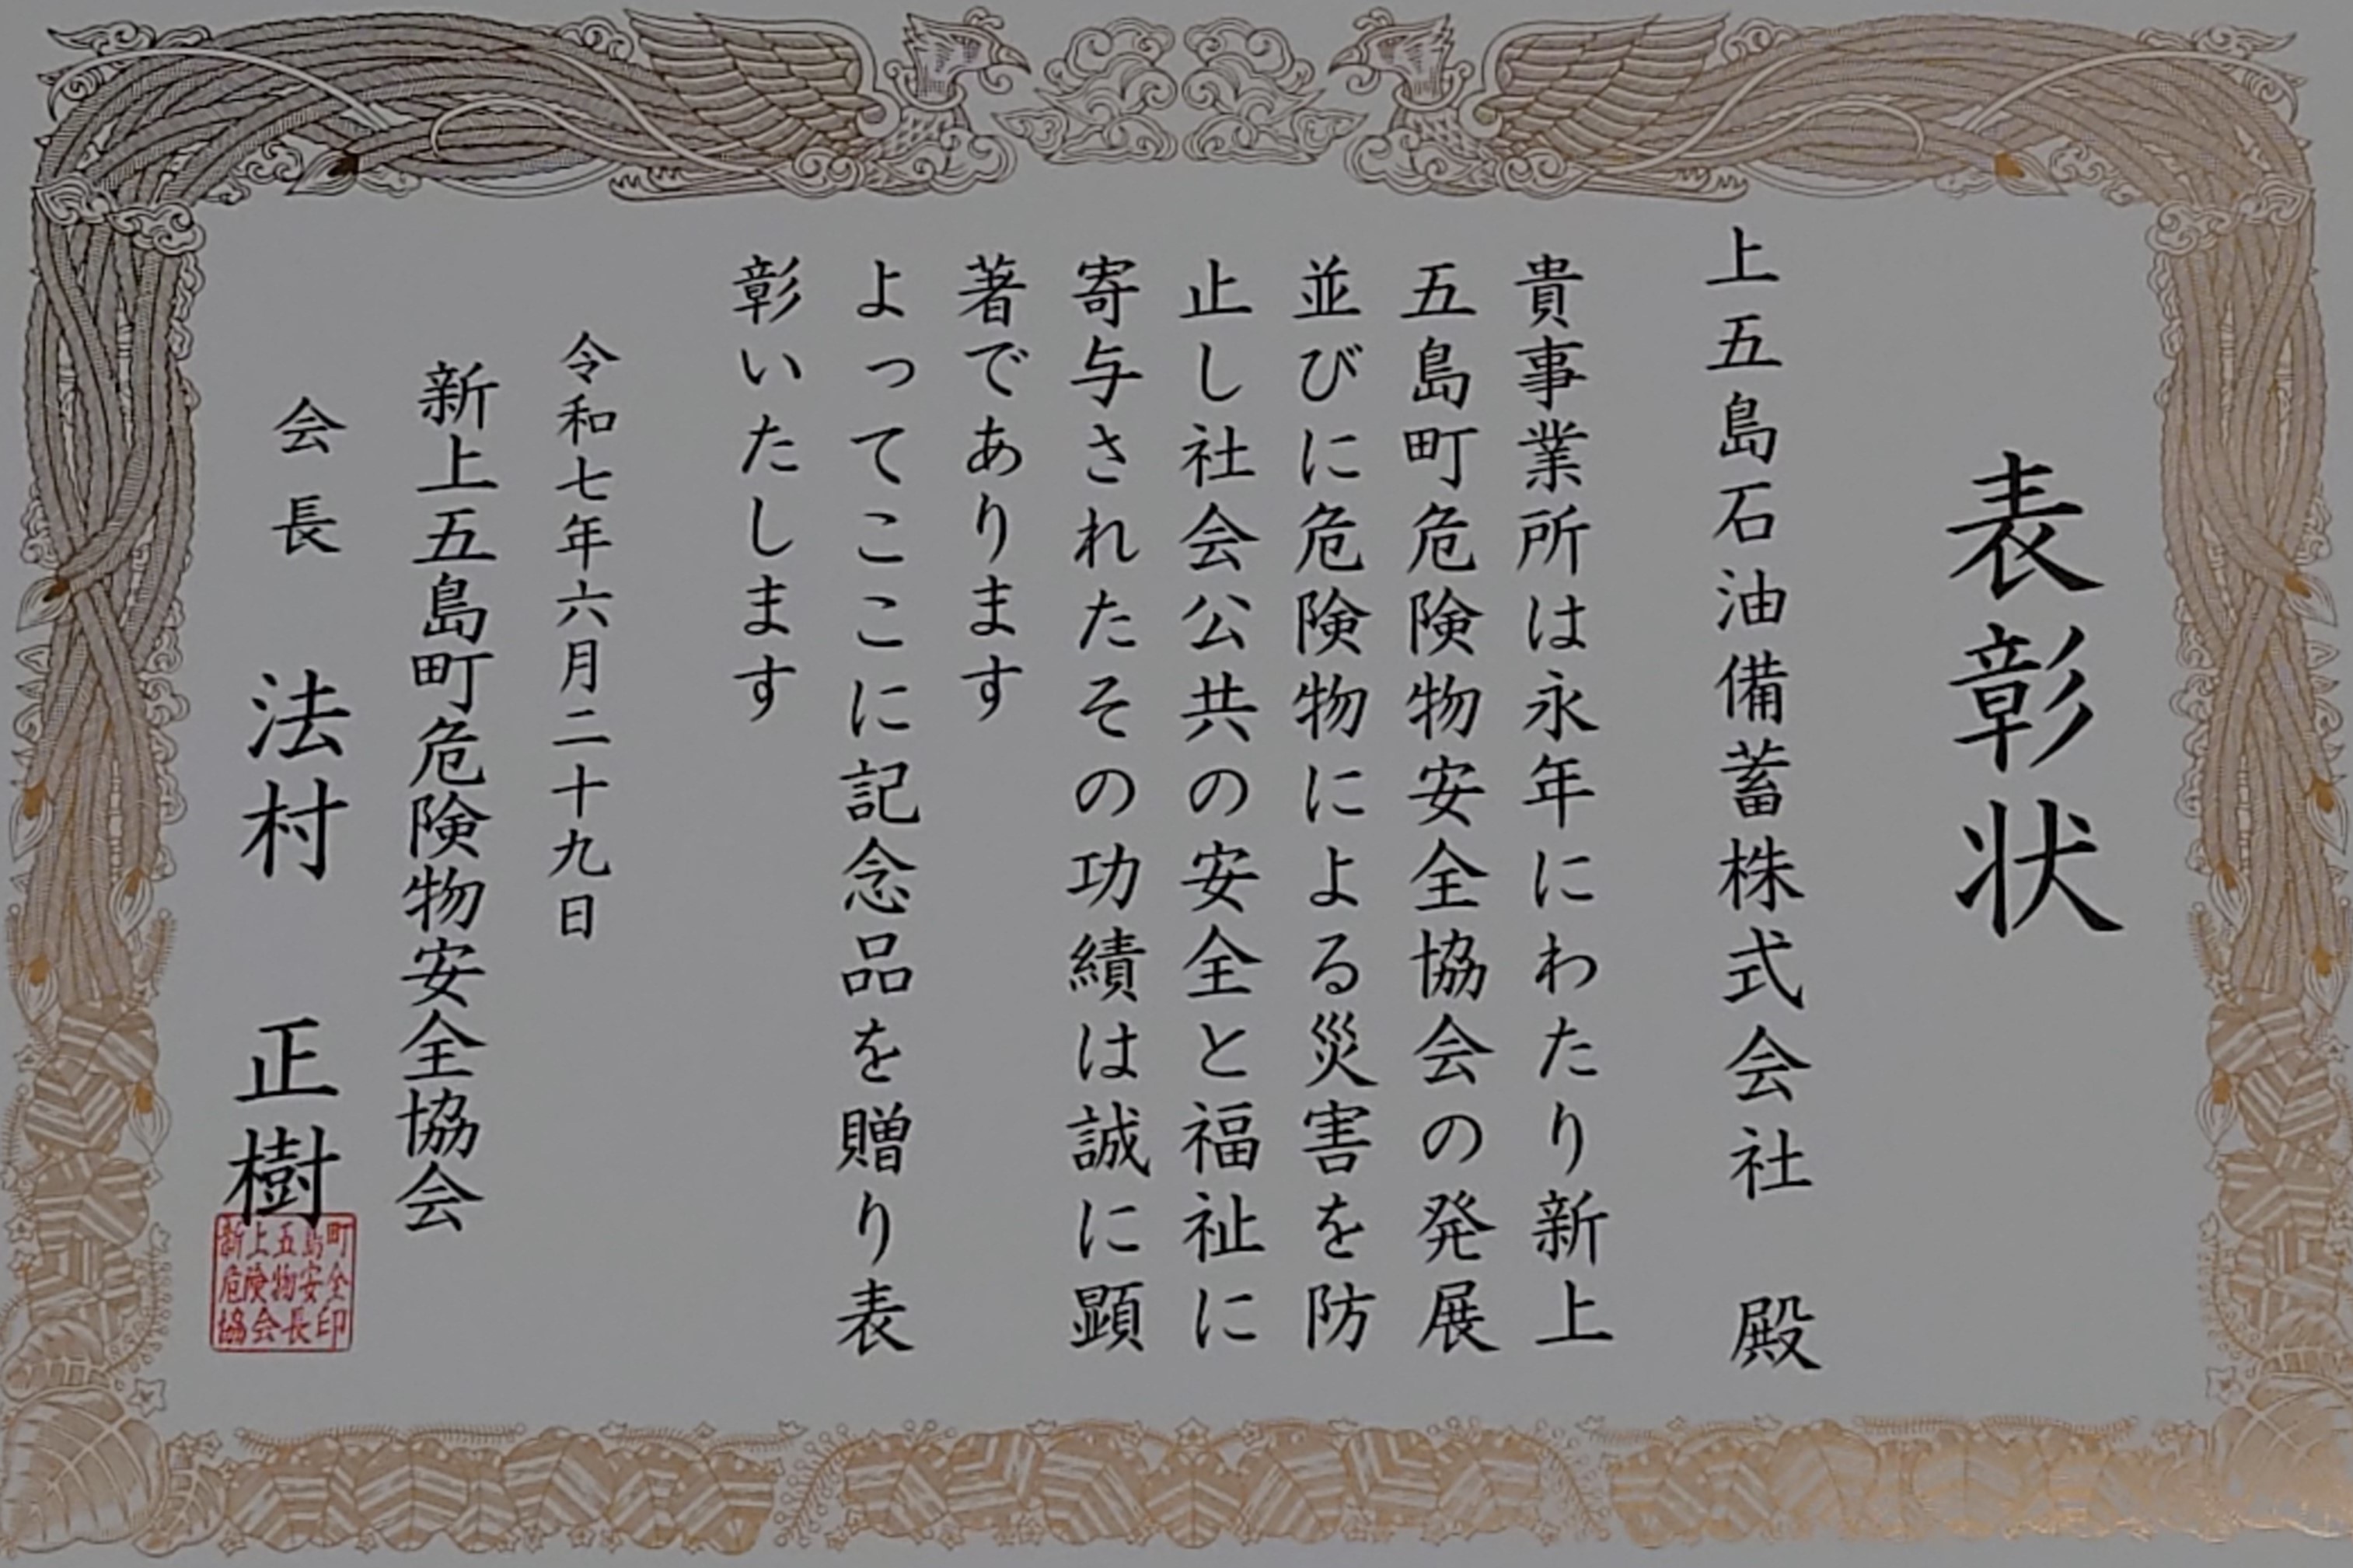 表彰状
上五島石油備蓄株式会社 殿
貴事業所は永年にわたり新上
五島町危険物安全協会の発展
並びに危険物による災害を防
止し社会公共の安全と福祉に
寄与されたその功績は誠に顕
著であります
よってここに記念品を贈り表
彰いたします
令和七年六月二十九日
新上五島町危険物安全協会
会長 法村 正樹
新上五島町
危険物安全
協会長印